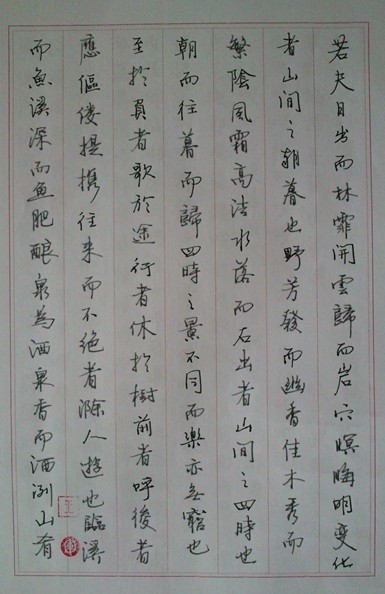 若夫日出而林霏開雲歸而岩穴暝晦明变化
者山間之朝暮也野芳發而幽香佳木秀而
繁陰風霜高洁水落而石出者山間之四時也
朝而往暮而歸四時之景不同而樂亦無窮也
至於負者歌於途行者休於樹前者呼後者
應傴僂提携往来而不绝者滁人遊也臨溪
而魚溪深而鱼肥酿泉為酒泉香而酒洌山肴